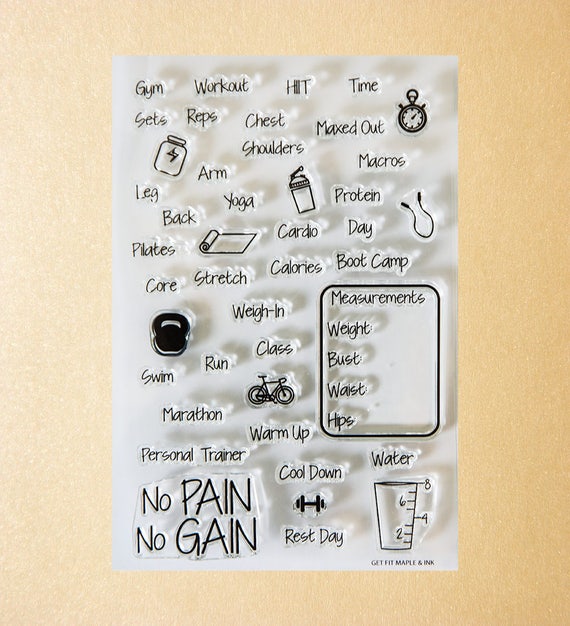 Gym Workout HIIT Time
Sets Reps Chest Maxed Out
Shoulders
Macros
Arm
Leg Yoga Protein
Back
Cardio Day
Pilates
Calories Boot Camp
Core Stretch
Measurements
Weigh-In
Weight:
Class
Bust:
Run
Swim
Waist:
Marathon
Hips:
Warm Up
Personal Trainer
Cool Down
Water
No PAIN
No GAIN
8
6
4
2
Rest Day
GET FIT MAPLE & INK